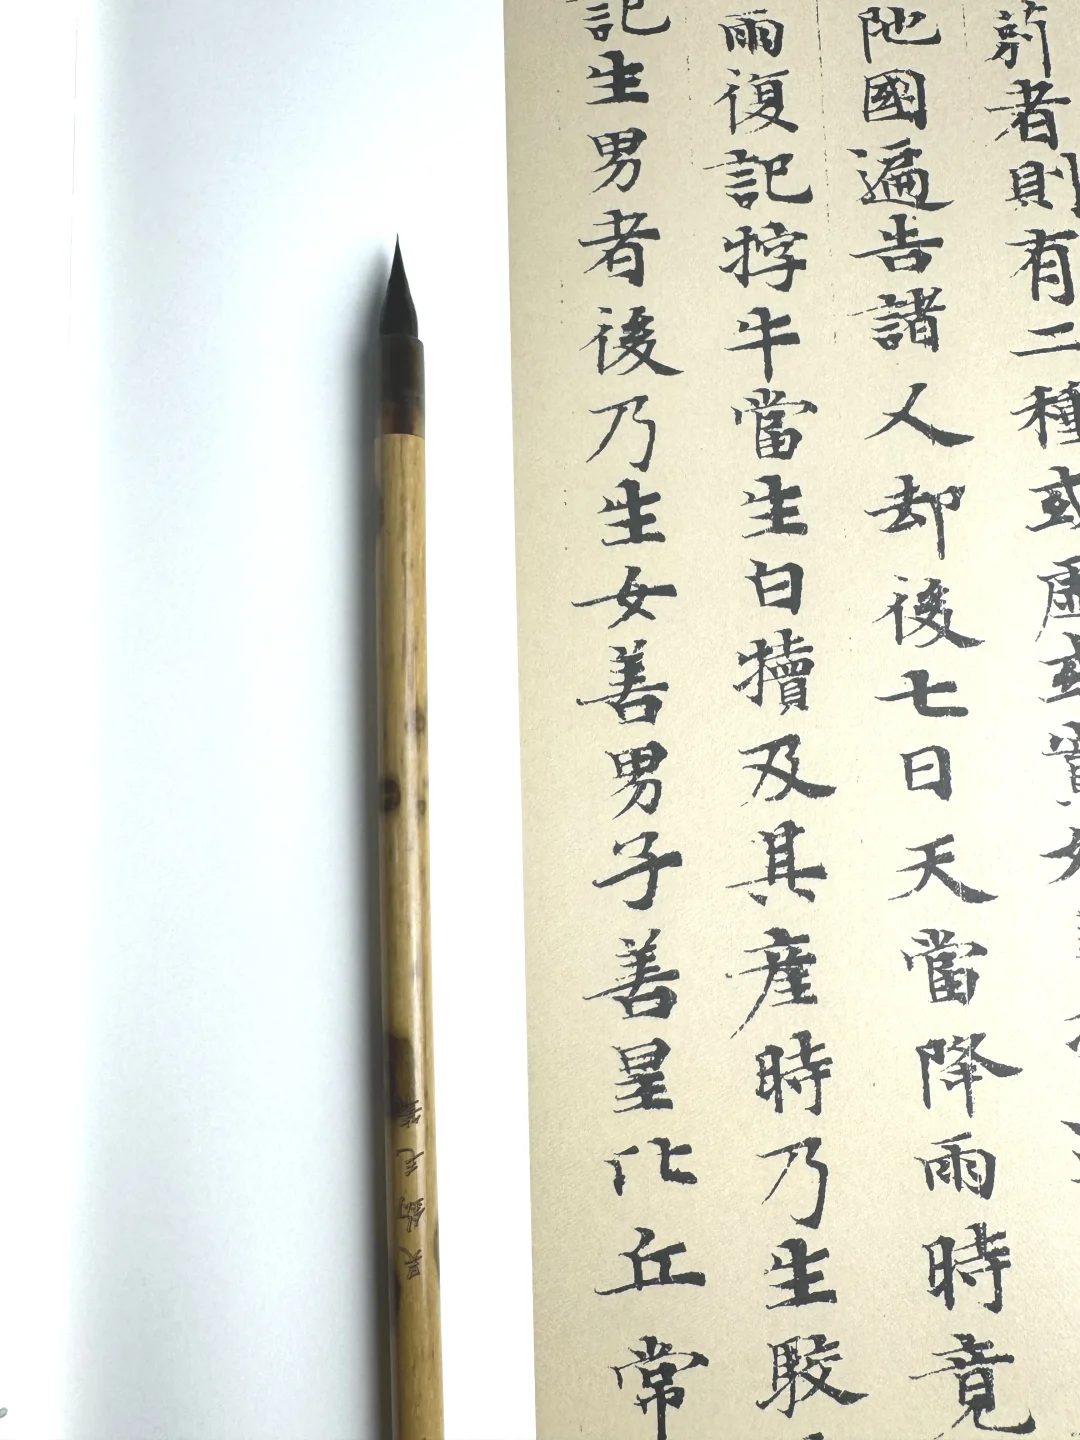 前者則有二種或虛或實
陁國遍告諸人却後七日天當降雨時竟
雨復記牸牛當生白犢及其產時乃生駁
記生男者後乃生女善男子善星比丘常